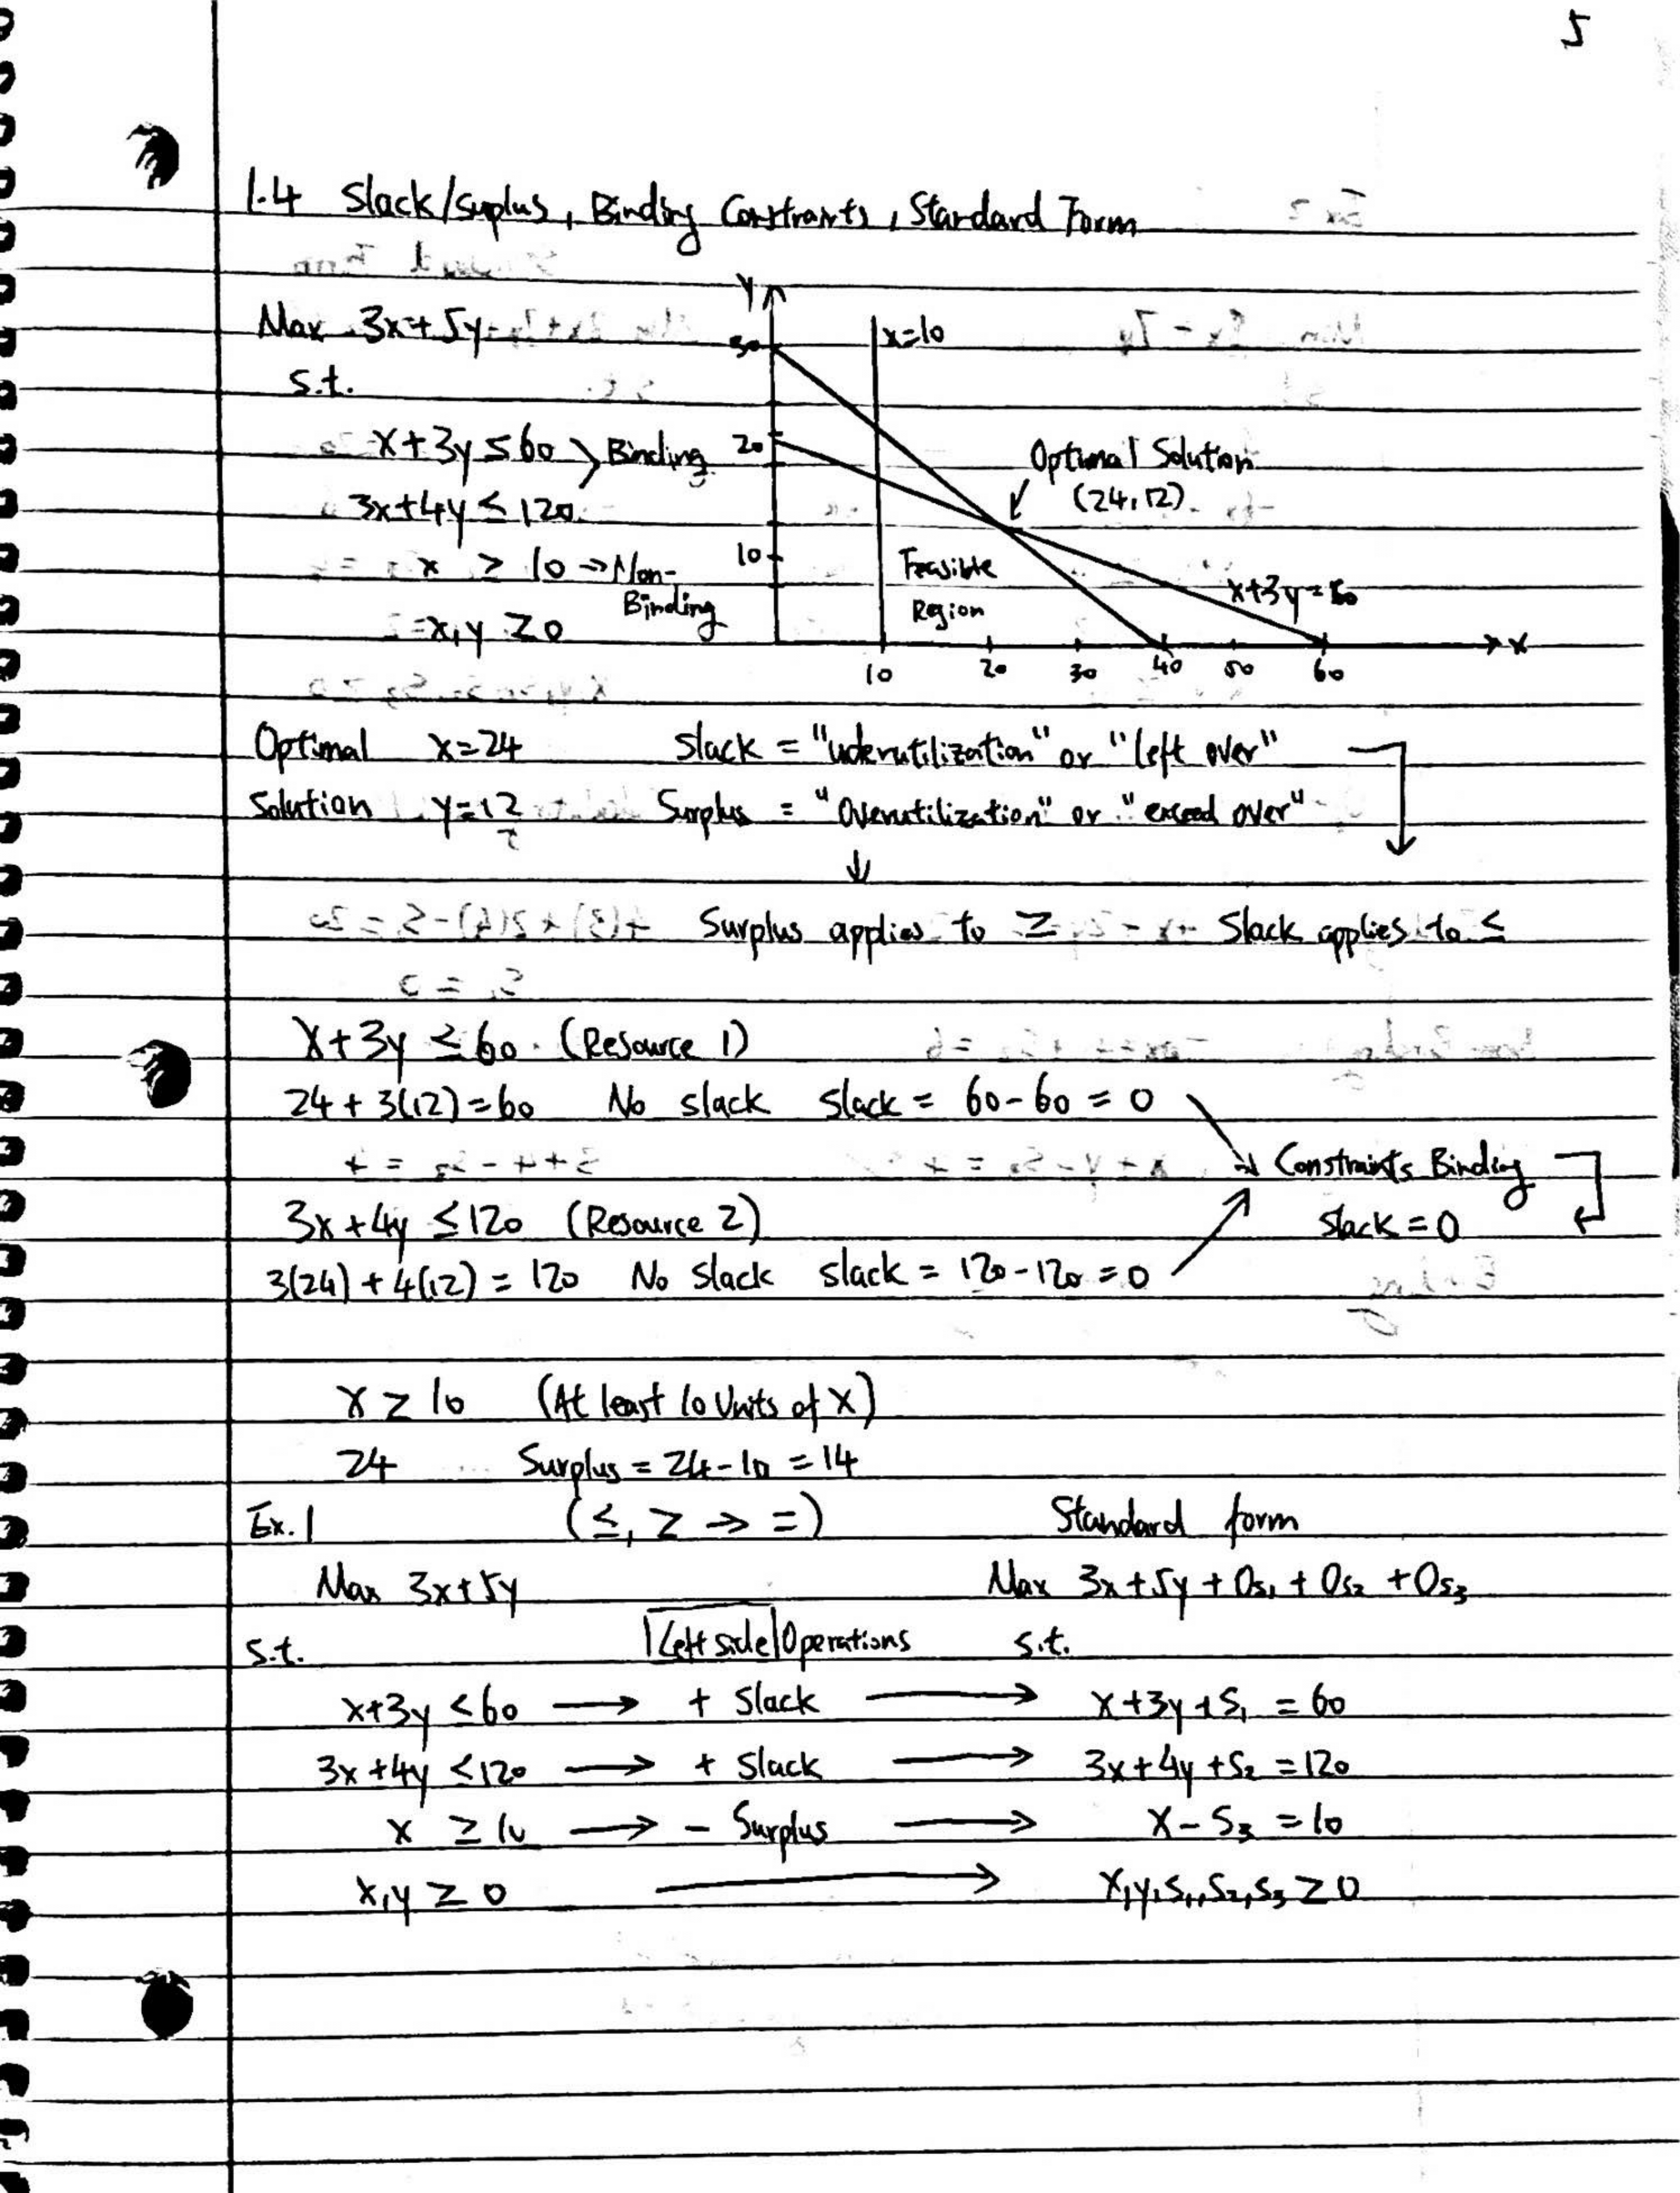 5
1.4 Slack/Suplus, Binding Constraints, Standard Form
Max 3x+5y
s.t.
x+3y ≤ 60 > Binding
3x+4y ≤ 120
x ≥ 10 → Non-
Binding
x,y ≥ 0
Y
30
x=10
20
10
Optimal Solution
(24,12)
Feasible
Region
x+3y=60
10 20 30 40 50 60 x
Optimal x=24 Slack = "uderutilization" or "left over"
Solution y=12 Surplus = "Overutilization" or "exceed over"
↓
Surplus applies to ≥ Slack applies to ≤
x+3y ≤ 60 (Resource 1)
24 + 3(12)=60 No slack slack = 60-60 = 0
→ Constraints Binding
3x+4y ≤ 120 (Resource 2) slack = 0
3(24)+4(12) = 120 No slack slack = 120-120 = 0
x ≥ 10 (At least 10 Units of X)
24 Surplus = 24-10 = 14
Ex.1 (≤, ≥ → =) Standard form
Max 3x+5y Max 3x+5y+0s₁+0s₂+0s₃
s.t. Left side Operations s.t.
x+3y ≤ 60 → + Slack → x+3y+S₁ = 60
3x+4y ≤ 120 → + Slack → 3x+4y+S₂ = 120
x ≥ 10 → - Surplus → x-S₃ = 10
x,y ≥ 0 → x,y,s₁,s₂,s₃ ≥ 0